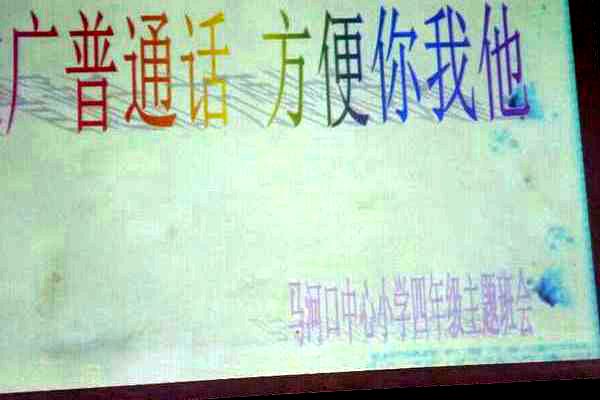 广普通话 方便你我他
马河口中心小学四年级主题班会